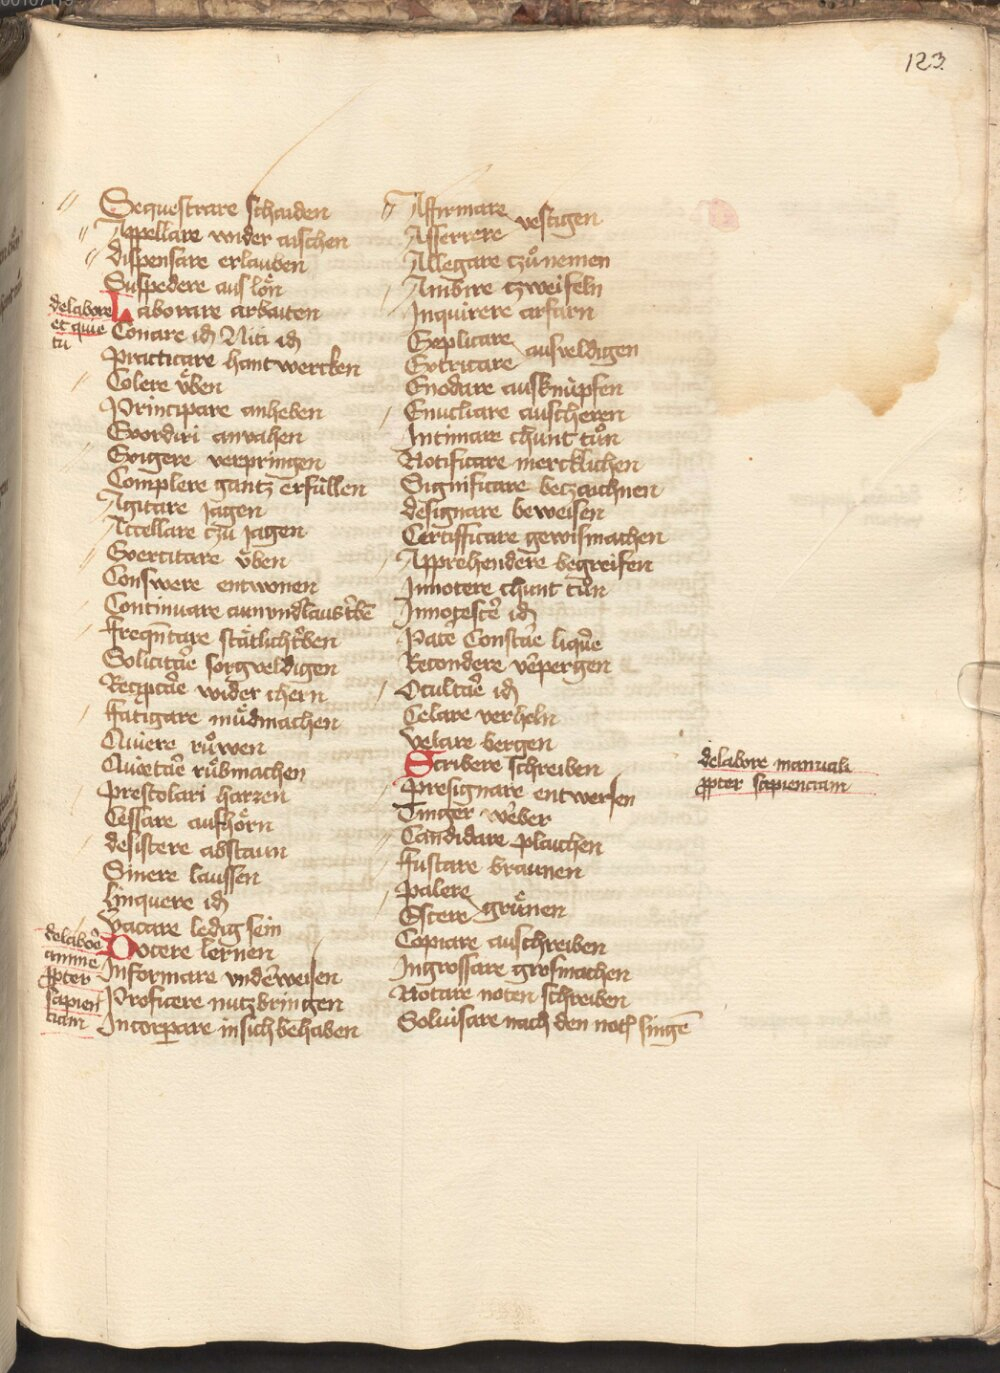 123
Sequestrare schaiden
Appellare wider aischen
dispensare erlauben
Suspedere aus lön
de labore
et quie
tu
Laborare arbaiten
Conare id Niti id
Practicare hantwercken
Colere üben
Principare anheben
Exordiri anvahen
Exigere verpringen
Complere gantz erfüllen
Agitare jagen
Attellare tzu jagen
Exercitare üben
Conswere entwonen
Continuare
Frequentare
Solicitare sorgveldigen
Receptare wider
Fatigare müdmachen
Quiere růwen
Quietare růbmachen
Prestolari harzen
Cessare aufhörn
desistere abstaun
Sinere laussen
Linquere id
Vacare ledig sein
Docere lernen
de labore
anime
propter
sapien
ciam
Informare underweisen
Proficere nutz bringen
Incorpare in sich behaben
Affirmare
vestigen
Asserere
Allegare tzůnemen
Ambire tzweifeln
Inquirere erfarn
Explicare
ausveldigen
Extricare
Enodare ausknüpfen
Enucliare auscheren
Intimare chunt tůn
Notificare mercklichen
Significare betzaichnen
designare beweisen
Certifficare gewismachen
Apprehendere begreifen
Innotere chunt tůn
Innotescere id
Patere Constare liquere
Recondere verpergen
Ocultare id
Celare verheln
Velare bergen
Scribere schreiben
de labore manuali
propter sapienciam
Presignare entwerfen
Tinger
Candidare plaichen
Fuscare braunen
Palere
grünen
Copiare auschreiben
Ingrossare grosmachen
Notare noten schreiben
Solvisare nach den noten singen